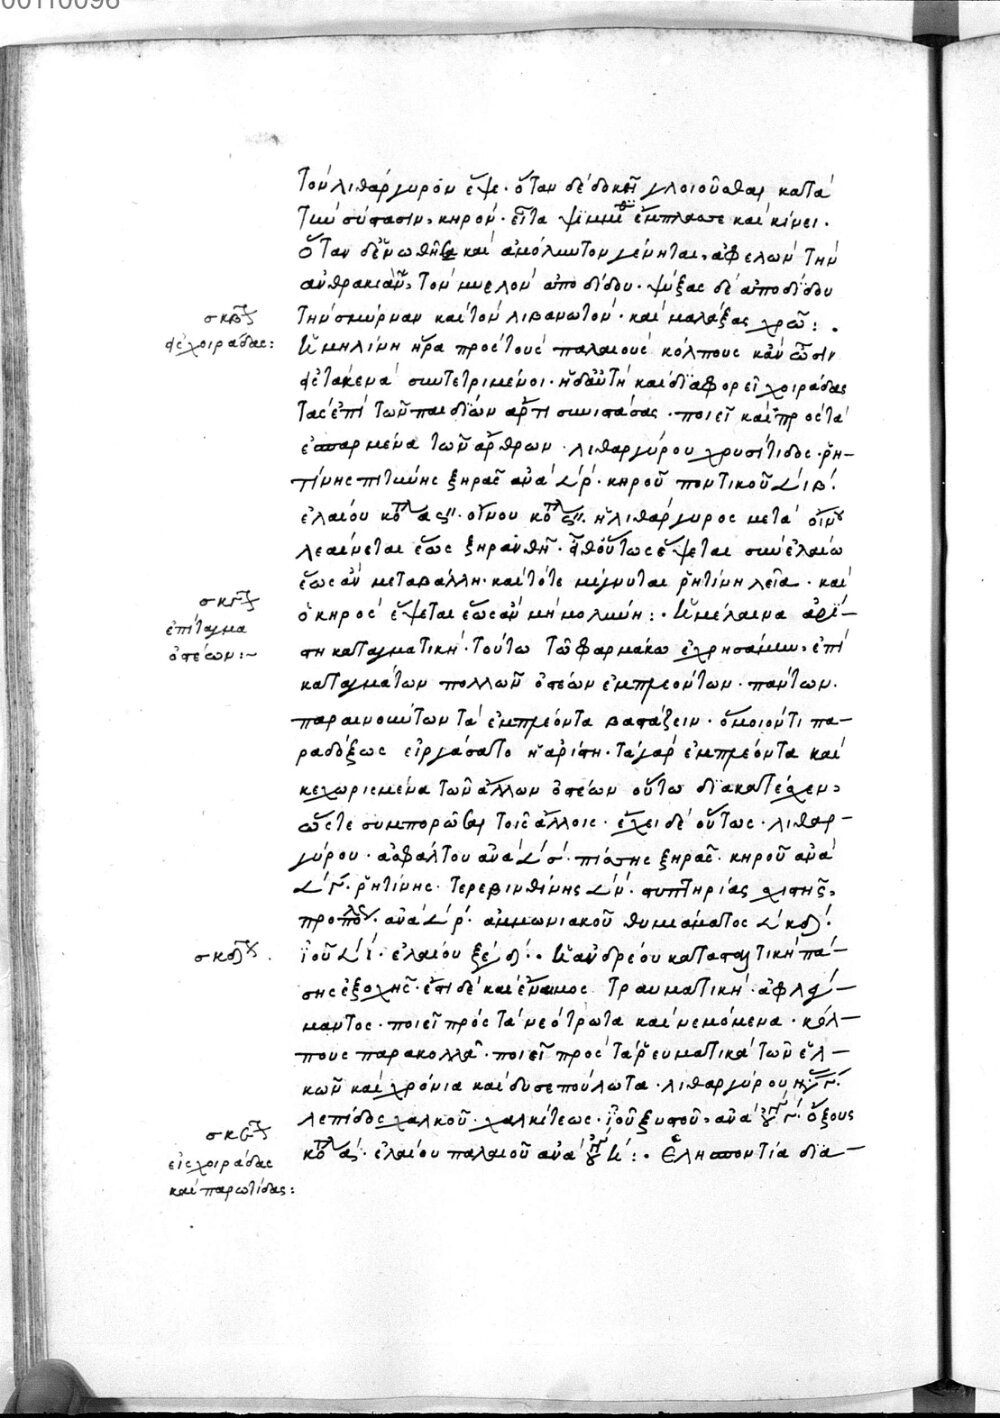 00110098
τὸν λιθάργυρον ἕψε· ὅταν δὲ δοκῆ γλοιοῦσθαι κατὰ
τὴν σύστασιν, κηρόν· εἶτα ψιμμύθιον ἔμπλασσε καὶ κίνει·
ὅταν δὲ ἑνωθῆται καὶ ἀμόλυντον γένηται, ἀφελὼν τὴν
ἀνθρακιὰν, τὸν μυελὸν ἀποδίδου· ψύξας δὲ ἀποδίδου
σκβ
τὴν σμύρναν καὶ τὸν λιβανωτόν· καὶ μαλάξας χρῶ:·
εἰς χοιράδας:
μηλίνη ἥρα πρὸς τοὺς παλαιοὺς κόλπους κἂν ὦσιν
συντετριμένοι· ἡ δ' αὐτὴ καὶ διαφορεῖ χοιράδας
τὰς ἐπὶ τῶν παιδίων ἄρτι συνιστάσας· ποιεῖ καὶ πρὸς τὰ
ἐπαρμένα τῶν ἄρθρων· λιθαργύρου χρυσίτιδος· ῥη-
τίνης πιτυίνης ξηρᾶς ἀνὰ 𐅻 ρ· κηροῦ ποντικοῦ 𐅻 ιβ·
ἐλαίου κοτ ας· οἴνου κοτ ς· ἡ λιθάργυρος μετὰ οἴνου
λεαίνεται ἕως ξηρανθῆ· εἶθ' οὕτως ἕψεται σὺν ἐλαίω
ἕως ἂν μεταβάλλη· καὶ τότε μίγνυται ῥητίνη λεῖα· καὶ
σκγ
ὁ κηρὸς ἕψεται ἕως ἂν μὴ μολύνη:· μέλαινα ἀρί-
ἐπίταγμα
ὀστέων:~
στη καταγματική· τούτω τῶ φαρμάκω ἐχρησάμην, ἐπὶ
καταγμάτων πολλῶν ὀστέων ἐμπλεόντων· πάντων
παραινούντων τὰ ἐμπλέοντα βαστάζειν· ὅμοιόν τι πα-
ραδόξως εἰργάσατο ἡ ἀρίστη· τὰ γὰρ ἐμπλέοντα καὶ
κεχωρισμένα τῶν ἄλλων ὀστέων οὕτω διακατέσχεν,
ὥστε συμπορῶσαι τοῖς ἄλλοις· ἔχει δὲ οὕτως· λιθαρ-
γύρου· ἀσφάλτου ἀνὰ 𐅻 σ· πίσσης ξηρᾶς· κηροῦ ἀνὰ
𐅻 ν· ῥητίνης· τερεβινθίνης 𐅻 ν· στυπτηρίας σχιστῆς,
προπόλεως· ἀνὰ 𐅻 ρ· ἀμμωνιακοῦ θυμιάματος 𐅻 κδ·
σκδ
ἰοῦ 𐅻 ι· ἐλαίου ξε δ:· ἀνδρέου καταπαστικὴ πά-
σης ἐξοχῆς· ἔτι δὲ καὶ ἔναιμος τραυματική· ἀφλεγ-
μαντος· ποιεῖ πρὸς τὰ νεότρωτα καὶ νεμόμενα· κόλ-
πους παρακολλᾶ· ποιεῖ πρὸς τὰ ῥευματικὰ τῶν ἑλ-
κῶν καὶ χρόνια καὶ δυσεπούλωτα· λιθαργύρου
λεπίδος χαλκοῦ· χαλκίτεως· ἰοῦ ξυστοῦ, ἀνὰ· ὄξους
σκε
κοτ α· ἐλαίου παλαιοῦ ἀνὰ:· ἑλησποντία δια-
εἰς χοιράδας
καὶ παρωτίδας: